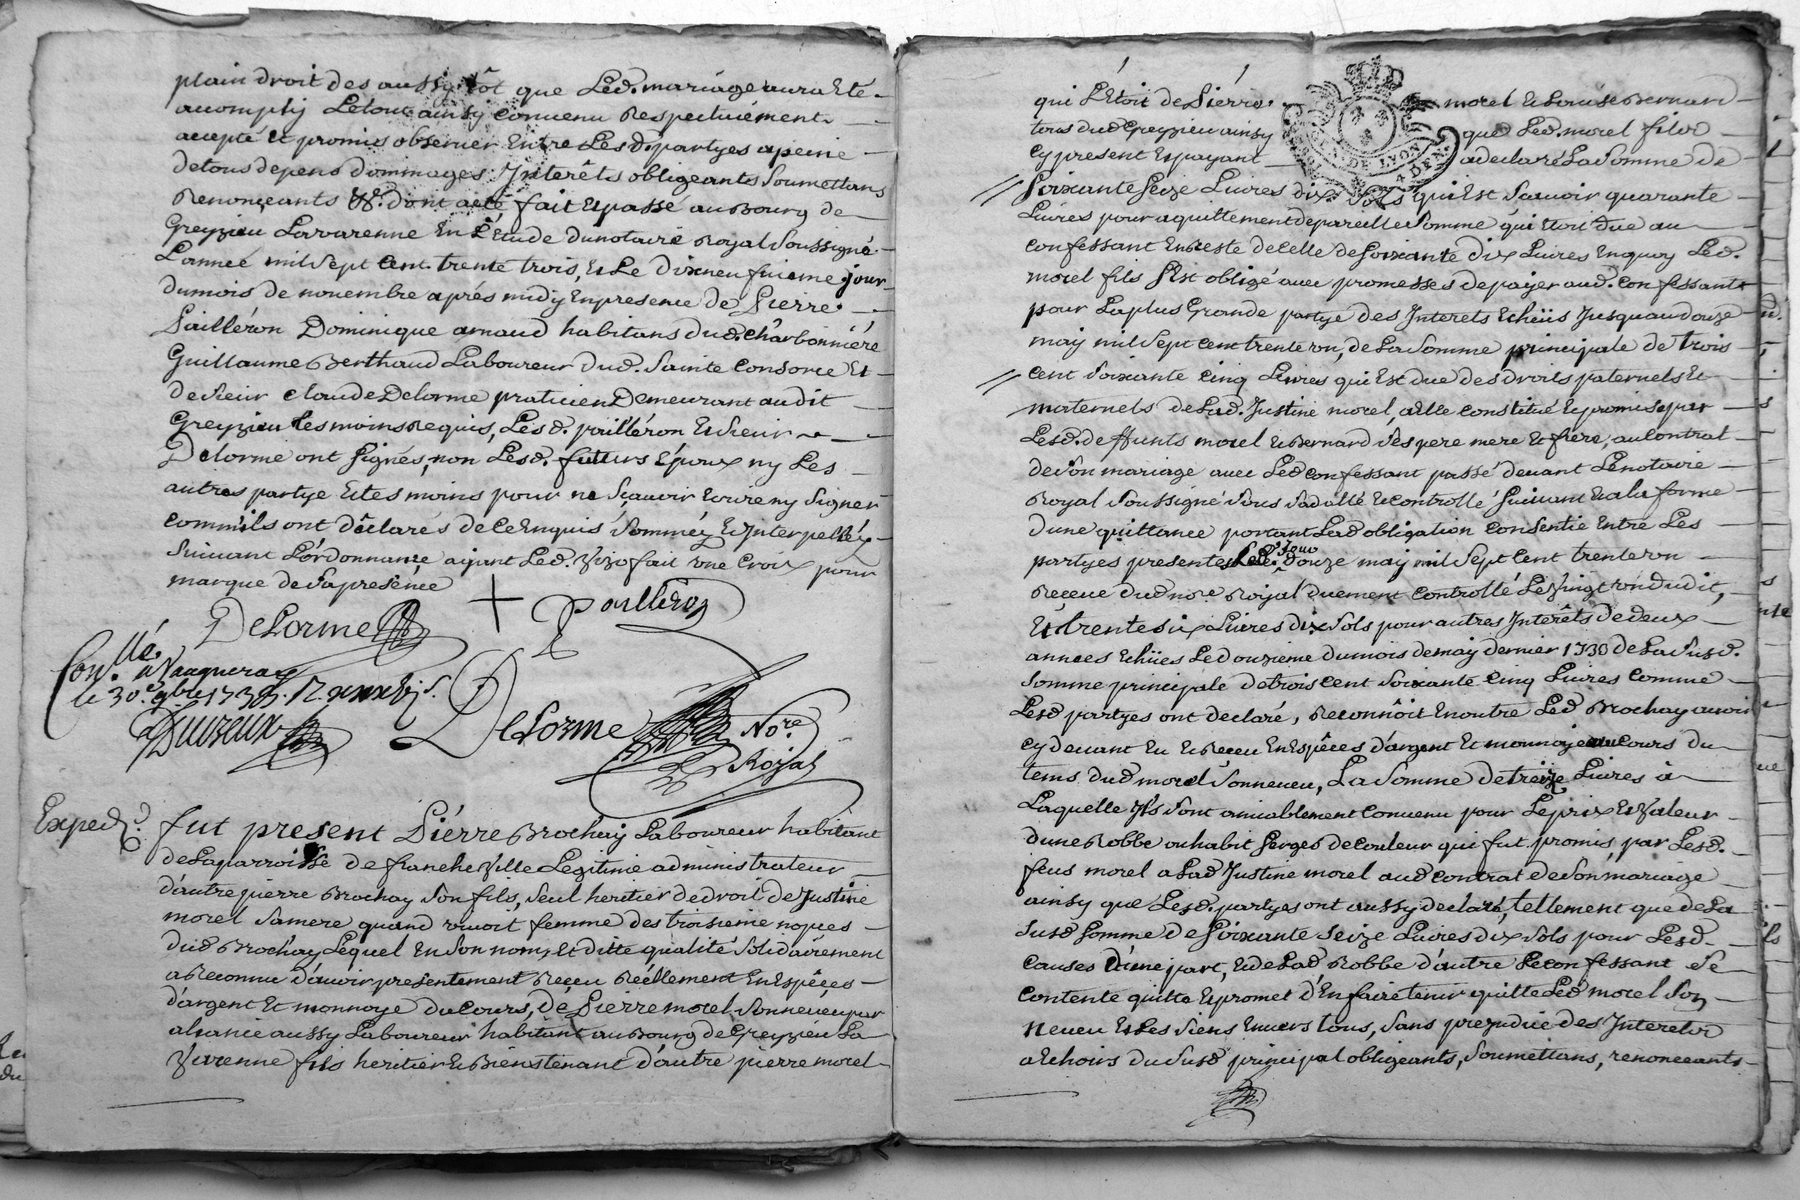 plain droit des aussy tôt que Led. mariage aura Eté
acomply Letout ainsy convenu Respectivement
accepté Et promis observer Entre Lesd. partyes apeine
detous depens dommages Interêts obligeants Soumettans
Renonçeants &c. dont acte fait Et passé au Bourg de
Greyzieu Lavarenne En L'Etude du notaire Royal Soussigné
L'année mil Sept Cent trente trois, Et Le dixneufvieme jour
dumois de novembre aprés midy En presence de Pierre
Pailléron Dominique arnaud habitans dud. Charbonniéré
Guillaume Berthaud Laboureur dud. Sainte Consorce Et
de Sieur claude Delorme praticien Demeurant audit
Greyzieu tesmoins Requis, Lesd. pailléron Et Sieur
Delorme ont Signés, non Lesd. futurs Epoux ny Les
autres partye Et tesmoins pour ne Sçavoir Ecrire ny Signer
comm'ils ont déclarés de ce Enquis Sommés Et Interpellés
Suivant L'ordonnance ayant Led. fait une Croix pour
marque de Sa presence
Delorme + Pailleron
Con.llé à Vaugneray
le 30.e 9bre 1733.
Delorme No.re
Royal
Exped.é
fut present Piérre Brochay Laboureur habitant
de La parroisse de francheville Legitime administrateur
d'autre pierre Brochay Son fils, Seul heritier de droit de Justine
morel Sa mere quand vivoit femme des troisieme nopces
dud Brochay Lequel En Son nom, et ditte qualité Solidairement
a Reconnu d'avoir presentement Reçeu Réellement En Espêçes
d'argent Et monnoye du Cours, de Pierre morel Son neveu par
aliance aussy Laboureur habitant au Bourg de Greyzieu La
Varenne fils heritier Et Bienstenant d'autre pierre morel
qui L'étoit de Piérre morel Et Louise Bernard
tous dud Greyzieu ainsy que Led. morel fils
cy present Et payant a declaré La Somme de
Soixante Seize Livres dix Sols qui Est Scavoir quarante
Livres pour aquittement de pareille Somme qui Etoit due au
confessant En Reste de Celle de Soixante dix Livres En quoy Led.
morel fils S'est obligé avec promesses de payer aud. Confessant
pour La plus Grande partye des Interets Echeüs Jusqu'au douze
may mil Sept cent trente un, de La Somme principale de trois
cent Soixante Cinq Livres qui Est due des droits paternels Et
maternels de Lad. Justine morel, a Elle constitué Et promis par
Lesd. deffunts morel Et Bernard Ses pere mere Et frere, au Contrat
de Son mariage avec Led confessant passé devant Le notaire
Royal Soussigné Sous Sa datte Et controllé Suivant Et a la forme
dune quittance portant Lad obligation Consentie Entre Les
partyes presentes Led. jour douze may mil Sept Cent trente un
Receue dud no.re Royal duement Controllé Le Vingt un dudit,
Et trente Six Livres dix Sols pour autres Interêts de deux
années Echües Le douzieme du mois de may dernier 1733 de La Susd.
Somme principale de trois cent Soixante Cinq Livres comme
Lesd partyes ont declaré, Reconnôit En outre Led Brochay avoir
cy devant Eu Et Reçeu En Espêces d'argent Et monnoye au Cours du
tems dud morel Son neveu, La Somme de treize Livres à
Laquelle Ils Sont amiablement Convenu pour Le prix Et Valeur
dune Robbe ou habit Serges de Couleur qui fut promis par Lesd.
feus morel a Lad Justine morel aud contrat de Son mariage
ainsy que Lesd. partyes ont aussy declaré, tellement que de La
Susd Somme de Soixante Seize Livres dix Sols pour Lesd
Causes dune part, Et de Lad Robbe d'autre Le confessant Se
Contente quitte Et promet d'En faire tenir quitte Led morel Son
neveu Et Les Siens Envers tous, Sans prejudice des Interets
a Echoirs du Susd principal obligeants, Soumettans, renonceants
GEN. DE LYON
4 DEN.